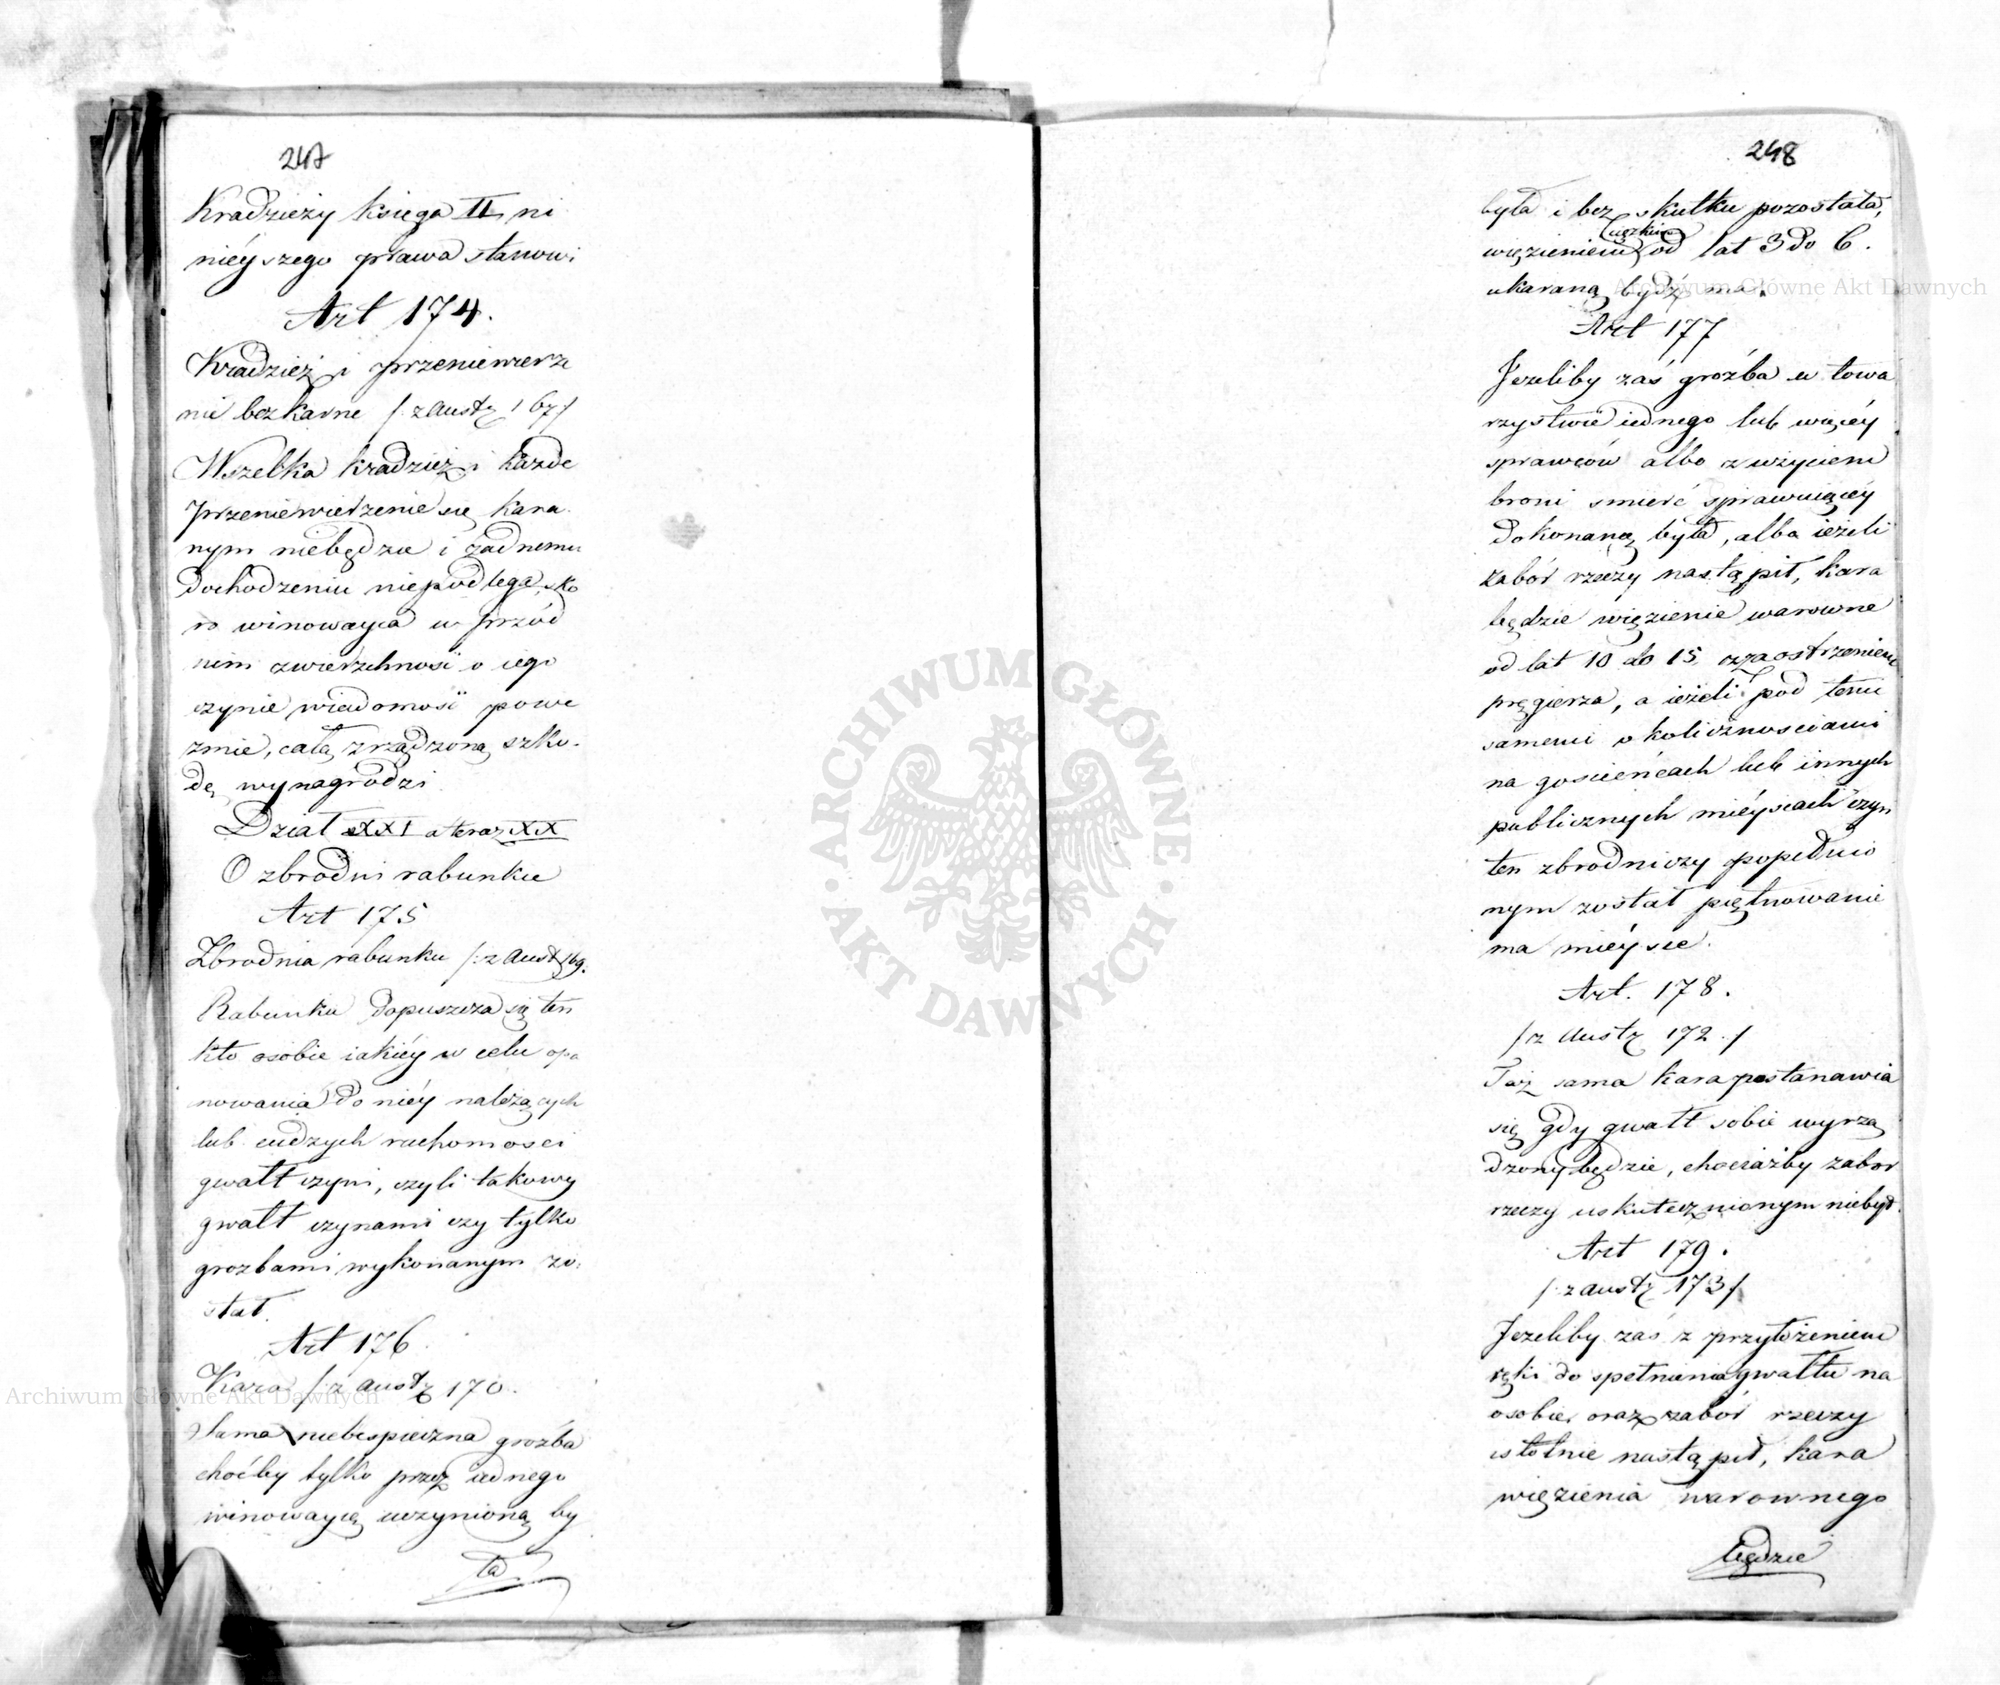 247
Kradzieży księga II ni
nieyszego prawa stanowi
Art 174.
Kradzież i przeniewierze
nie bezkarne /: z austr 167/
Wszelka kradzież i każde
przeniewierzenie się kara
nym niebędzie i żadnemu
dochodzeniu niepodlega, sko
ro winowayca w przód
nim zwierzchność o iego
czynie wiadomość powe
zmie, całą zrządzoną szko.
dę wynagrodzi
Dział XXI a teraz XX
O zbrodni rabunku
Art 175
Zbrodnia rabunku /: z austr 169.
Rabunku dopuszcza się ten
kto osobie iakiéy w celu opa
nowania do niéy należących
lub cudzych ruchomosci
gwałt czyni, czyli takowy
gwałt czynami czy tylko
grozbami wykonanym zo.
stał.
Art 176
Kara /: z austr 170.
Sama niebespieczna groźba
choćby tylko przez iednego
winowaycę uczynioną by
ła
248
była i bez skutku pozostała,
ciężkim
więzieniem od lat 3 do 6.
ukaraną bydź ma.
Art 177
Jezeliby zaś groźba w towa
rzystwie iednego lub więcéy
sprawców albo z użyciem
broni smierć sprawuiącéy
dokonaną była, albo ieżeli
zabór rzeczy nastąpił, kara
będzie więzienie warowne
od lat 10 do 15 z zaostrzeniem
pręgierza, a ieżeli pod temi
samemi okolicznosciami
na gosieńcach lub innych
publicznych mieyscach czyn
ten zbrodniczy popełnio
nym został piętnowanie
ma mieysce.
Art. 178.
/: z Austr 172 :/
Taż sama kara postanawia
się gdy gwałt sobie wyrzą
dzony będzie, chociażby zabor
rzeczy uskutecznionym niebył.
Art 179.
/: z austr 173/
Jezeliby zaś z przyłożeniem
ręki do spełnienia gwałtu na
osobie, oraz zabór rzeczy
istotnie nastąpił, kara
więzienia warownego
będzie
Archiwum Główne Akt Dawnych
Archiwum Główne Akt Dawnych
ARCHIWUM GŁÓWNE
AKT DAWNYCH